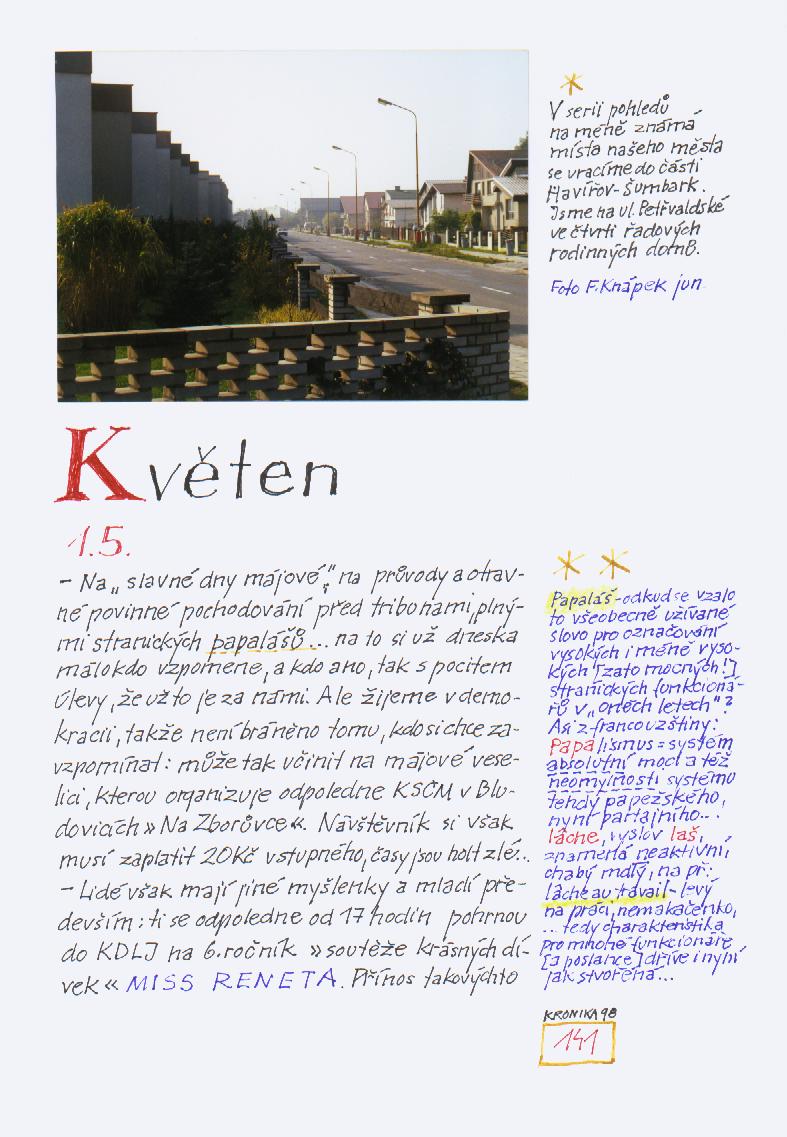 *
V serii pohledů
na méně známá
místa našeho města
se vracíme do části
Havířov-Šumbark.
Jsme na ul. Petřvaldské
ve čtvrti řadových
rodinných domů.
Foto F. Knápek jun.
Květen
1.5.
– Na „slavné dny májové“, na průvody a otrav-
né povinné pochodování před tribonami, plný-
mi stranických papalášů... na to si už dneska
málokdo vzpomene, a kdo ano, tak s pocitem
úlevy, že už to je za námi. Ale žijeme v demo-
kracii, takže není bráněno tomu, kdo si chce za-
vzpomínat: může tak učinit na májové vese-
lici, kterou organizuje odpoledne KSČM v Blu-
dovicích »Na Zborůvce«. Návštěvník si však
musí zaplatit 20Kč vstupného, časy jsou holt zlé...
– Lidé však mají jiné myšlenky a mladí pře-
devším: ti se odpoledne od 17 hodin pohrnou
do KDLJ na 6. ročník »soutěže krásných dí-
vek« MISS RENETA. Přínos takovýchto
* *
Papaláš - odkud se vzalo
to všeobecně užívané
slovo pro označování
vysokých i méně vyso-
kých [zato mocných!]
stranických funkcioná-
řů v „oněch letech“?
Asi z francouzštiny:
Papalismus = systém
absolutní moci a též
neomylnosti systému
tehdy papežského,
nyní partajního...
lâche, vyslov laš,
znamená neaktivní
chabý mdlý, na př.:
lâche au travail - levý
na práci, nemakačenko,
... tedy charakteristika
pro mnohé funkcionáře
[a poslance] dříve i nyní
jak stvořená...
KRONIKA 98
141